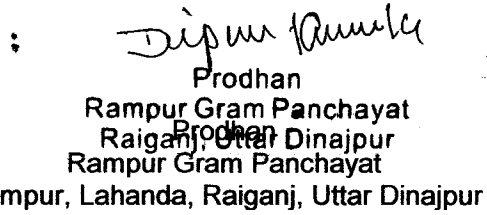 :
Prodhan
Rampur Gram Panchayat
Raiganj, Uttar Dinajpur
Prodhan
Rampur Gram Panchayat
mpur, Lahanda, Raiganj, Uttar Dinajpur